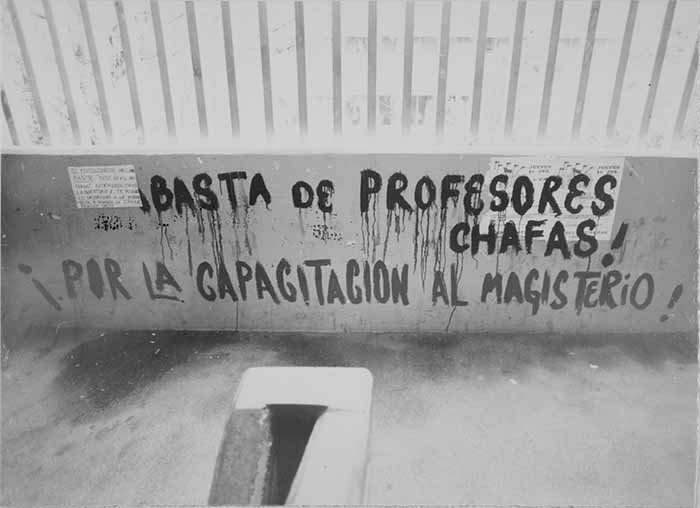 ¡BASTA DE PROFESORES
CHAFAS!
¡POR LA CAPACITACION AL MAGISTERIO!